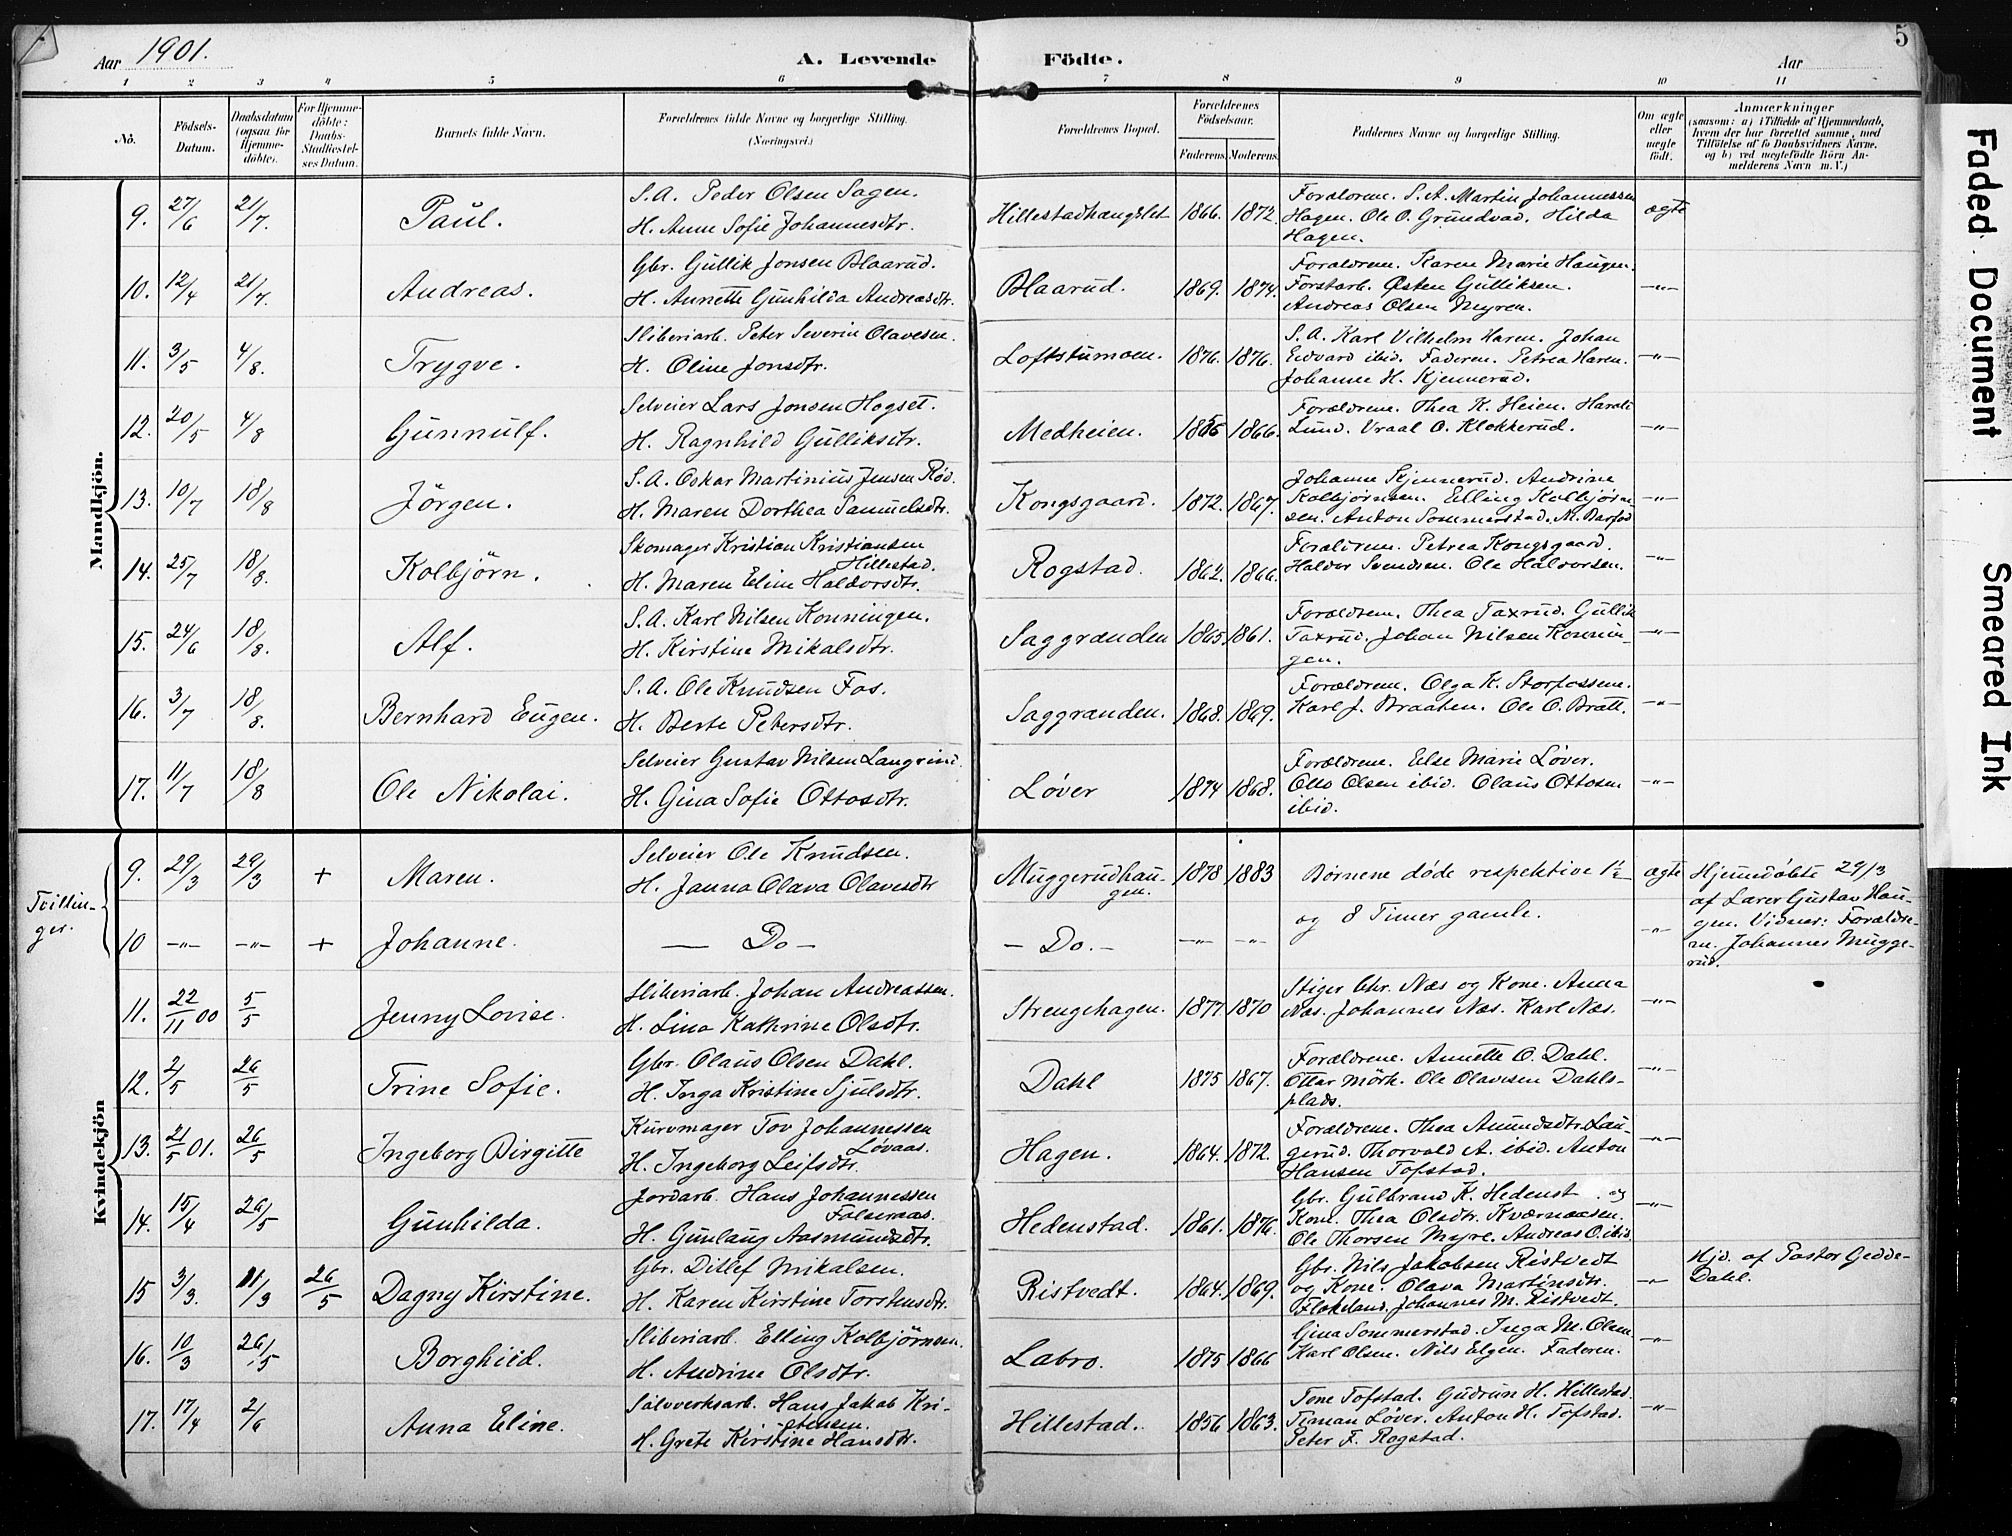 Aar 1901.
A. Levende Födte.
Aar
5
1 2 3 4 5 6 7 8 9 10 11
No.
Födsels-Datum.
Daabsdatum (ogsaa for Hjemme-döbte).
For Hjemme-döbte: Daabs-Stadfæstel-ses Datum.
Barnets fulde Navn.
Forældrenes fulde Navne og borgerlige Stilling. (Næringsvei.)
Forældrenes Bopæl.
Forældrenes Födselsaar.
Faderens. Moderens.
Faddernes Navne og borgerlige Stilling.
Om ægte eller uægte födt.
Anmærkninger
(saasom: a) i Tilfælde af Hjemmedaab, hvem der har forrettet samme, med Tilföielse af to Daabsvidners Navne, og b) ved uægtefödte Börn An-melderens Navn m.V.)
Mandkjön.
9. 27/6 21/7. Paul. S. A. Peder Olsen Sagen.
H. Anne Sofie Johannesdtr. Hillestadhangslet 1866. 1872. Forældrene. S. A. Martin Johannessen
Hagen. Ole O. Grundvad. Hilda
Hagen. ægte
10. 12/4 21/7. Andreas. Gbr. Gullik Jonsen Blaarud.
H. Annette Gunhilda Andreasdtr. Blaarud. 1869. 1874. Forældrene. Karen Marie Haugen.
Forstarb. Østen Gulliksen.
Andreas Olsen Myren. -"-
11. 3/5 4/8. Trygve. Sliberiarb. Peter Severin Olavesen.
H. Oline Jonsdtr. Loftstumoen. 1876. 1876. S. A. Karl Vilhelm Haren. Johan
Edvard ibid. Faderen. Petrea Haren.
Johanne H. Kjennerud. -"-
12. 20/5 4/8 Gunnulf. Selveier Lars Jonsen Hogset.
H. Ragnhild Gulliksdtr. Medheien. 1866. Forældrene. Thea K. Heien. Harald
Lund. Vraal O. Klokkerud. -"-
13. 10/7 18/8 Jörgen. S. A. Oskar Martinius Jensen Rød.
H. Maren Dorthea Samuelsdtr. Kongsgaard. 1872. 1867. Johanne Kjennerud. Andrine
Kolbjørnsen. Elling Kolbjørn-
sen. Anton Sommerstad. M. Barfod -"-
14. 25/7 18/8. Kolbjörn. Skomager Kristian Kristiansen
Hillestad.
H. Maren Eline Haldorsdtr. Rogstad. 1862. 1866. Forældrene. Petrea Kongsgaard.
Haldor Svendsen. Ole Haldorsen. -"-
15. 24/6 18/8. Alf. S. A. Karl Nilsen Konningen.
H. Kirstine Mikalsdtr. Saggranden 1865 1861. Forældrene. Thea Taxrud. Gullik
Taxrud. Johan Nilsen Konnin-
gen. -"-
16. 3/7 18/8. Bernhard Eugen. S. A. Ole Knudsen Fos.
H. Berte Petersdtr. Saggranden. 1868. 1869. Forældrene. Olga K. Storfossene.
Karl J. Braaten. Ole O. Bratt. -"-
17. 11/7 18/8 Ole Nikolai. Selveier Gustav Nilsen Langrind.
H. Gina Sofie Ottosdtr. Løver 1874 1868. Forældrene. Else Marie Løver.
Otto Olsen ibid. Olaus Ottosen
ibid. -"-
Kvindekjön
Tvillin-
ger.
9. 29/3 29/3 + Maren. Selveier Ole Knudsen.
H. Janna Olava Olavesdtr Muggerudhau-
gen. 1878 1883 Børnene døde respektive 1½
og 8 Timer gamle. ægte Hjemmedøbte 29/3
af Lærer Gustav Hau-
gen. Vidner: Forældre-
ne. Johannes Mugge-
rud.
10 -"- -"- + Johanne. — Do — — Do. — -"- -"- -"-
11. 22/11 00 5/5 Jenny Lovise. Sliberiarb. Johan Andreassen.
H. Lina Kathrine Olsdtr. Strengehagen. 1877. 1870 Stiger Chr. Næs og Kone. Anna
Næs. Johannes Næs. Karl Næs. -"-
12. 2/5 26/5 Trine Sofie. Gbr. Olaus Olsen Dahl.
H. Inga Kristine Sjulsdtr. Dahl 1875 1867. Forældrene. Annette O. Dahl.
Ottar Mörk. Ole Olavesen Dahls-
plads. -"-
13. 21/5 01. 26/5 Ingeborg Birgitte Kurvmager Tov Johannessen
Løvaas.
H. Ingeborg Leifsdtr. Hagen. 1864. 1872. Forældrene. Thea Amundsdtr. Lau-
gerud. Thorvald A. ibid. Anton
Hansen Tofstad. -"-
14. 15/4 26/5 Gunhilda. Jordarb. Hans Johannessen
Falseraas.
H. Gunlaug Aasmundsdtr. Hedenstad. 1861. 1876. Gbr. Gulbrand K. Hedenst . og
Kone. Thea Olsdtr. Kværnaasen.
Ole Thorsen Myre. Andreas O. ibid. -"-
15 3/3. 11/3 26/5 Dagny Kirstine. Gbr. Ditlef Mikalsen.
H. Karen Kirstine Torstensdtr. Ristvedt. 1864. 1869. Gbr. Nils Jakobsen Ristvedt
og Kone. Olava Martinsdtr.
Flakeland. Johannes M. Ristvedt. -"- Hjd. af Pastor Gedde-
Dahl.
16. 10/3 26/5 Borghild. Sliberiarb. Elling Kolbjörnsen.
H. Andrine Olsdtr. Labro. 1875 1866 Gina Sommerstad. Inga M. Olsen.
Karl Olsen. Nils Elgen. Faderen. -"-
17. 17/4 2/6 Anna Eline. Sølvverksarb. Hans Jakob Kri-
stensen.
H. Grete Kirstine Hansdtr. Hillestad. 1856 1863. Tone Tofstad. Gudrun H. Hillestad.
Timan Løver. Anton H. Tofstad.
Peter F. Rogstad. -"-
Faded Document
Smeared Ink